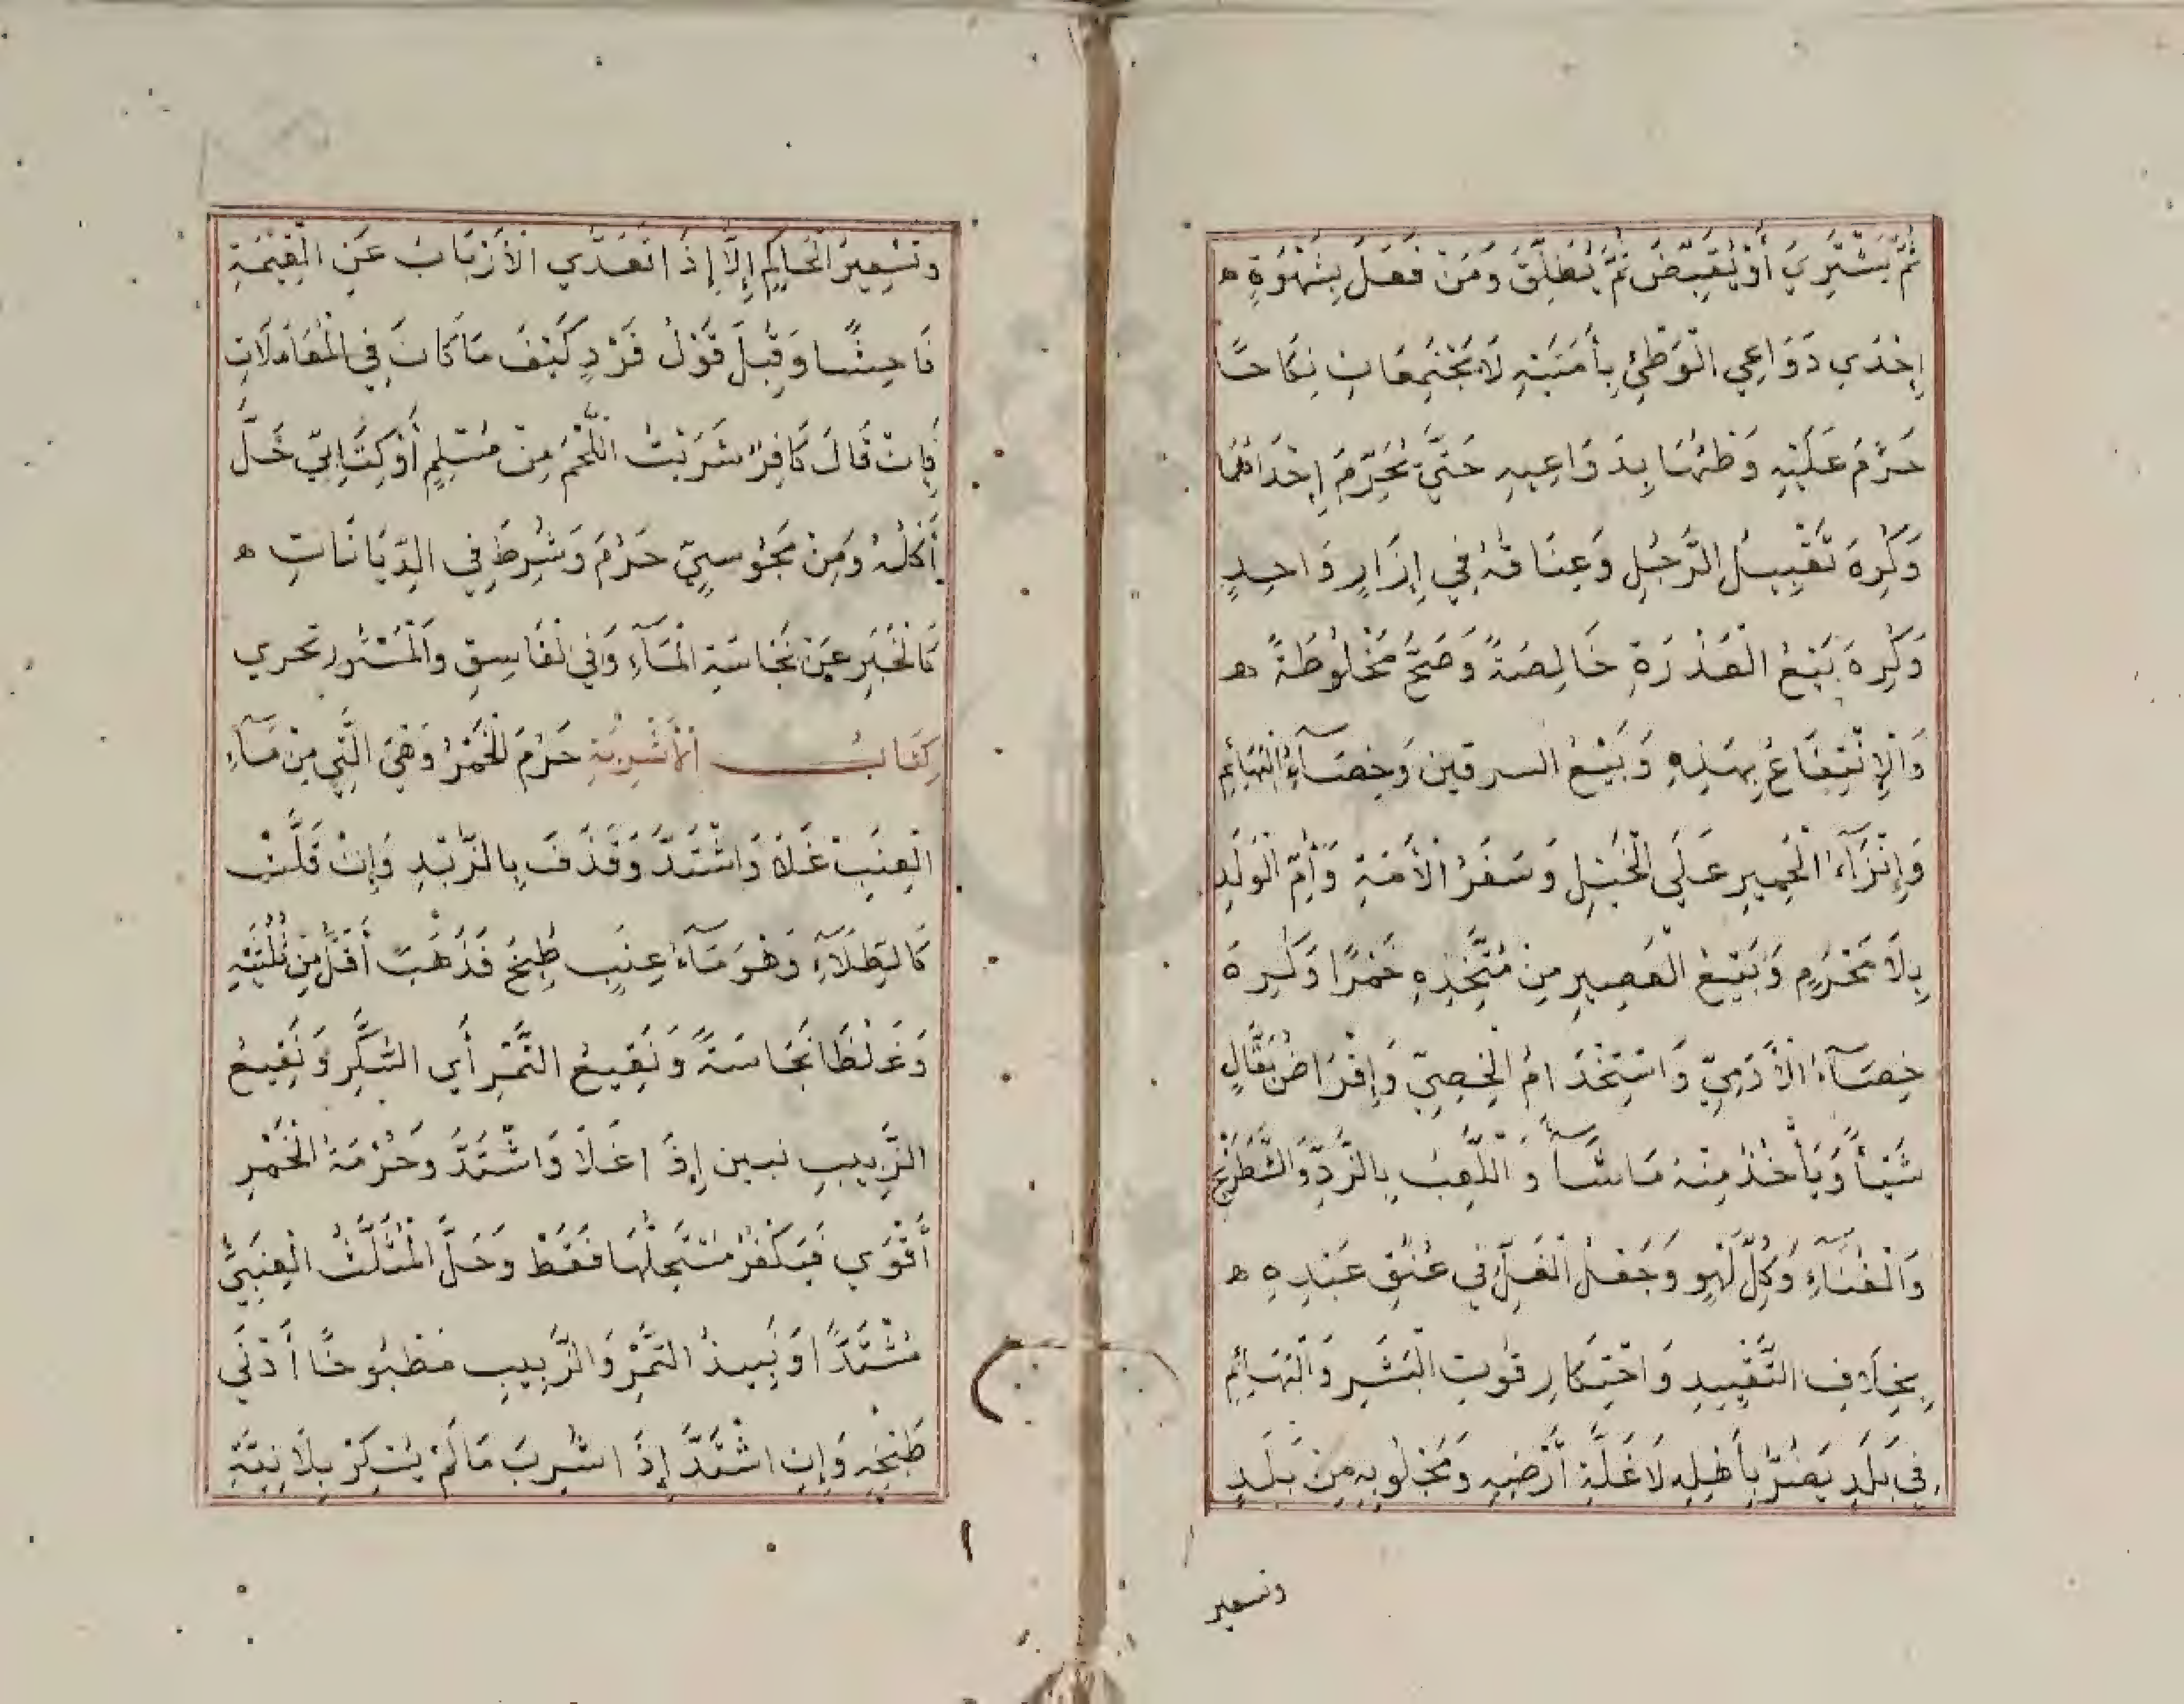 ثُمَّ يَشْتَرِيَ أَوْ يُقَبِّضَ ثُمَّ يُطَلِّقَ وَمَنْ فَعَلَ بِشَهْوَةٍ ه
إِحْدَي دَوَاعِي الْوَطْئِ بِأَمَتَيْهِ لَا يَجْتَمِعَانِ نِكَاحًا
حَرُمَ عَلَيْهِ وَطْئُهَا بِدَوَاعِيهِ حَتَّي يُحَرِّمَ إِحْدَاهُمَا
وَكُرِهَ تَقْبِيلُ الرَّجُلِ وَعِنَاقُهُ فِي إِزَارٍ وَاحِدٍ
وَكُرِهَ بَيْعُ الْعَذِرَةِ خَالِصَةً وَصَحَّ مَخْلُوطَةً ه
وَالِانْتِفَاعُ بِهَذِهِ وَبَيْعُ السرقين وَخِصَآءُ الْبَهَائِمِ
وَإِنْزَآءُ الْحَمِيرِ عَلَي الْخَيْلِ وَسَفَرُ الْأَمَةِ وَأُمِّ الْوَلَدِ
بِلَا مَحْرَمٍ وَبَيْعُ الْعَصِيرِ مِنْ مُتَّخِذِهِ خَمْرًا وَكُرِهَ
خِصَآءُ الْآدَمِيِّ وَاسْتِخْدَامُ الْخَصِيِّ وَإِقْرَاضُ بَقَّالٍ
شَيْئًا وَيَأْخُذُ مِنْهُ مَا شَآءَ وَاللَّعِبُ بِالنَّرْدِ وَالشَّطْرَنْجِ
وَالْغِنَآءِ وَكُلِّ لَهْوٍ وَجَعْلُ الْغُلِّ فِي عُنُقِ عَبْدِهِ ه
بِخِلَافِ التَّقْيِيدِ وَاحْتِكَارِ قُوتِ الْبَشَرِ وَالْبَهَائِمِ
فِي بَلَدٍ يَضُرُّ بِأَهْلِهِ لَا غَلَّةِ أَرْضِهِ وَمَجْلُوبِهِ مِنْ بَلَدٍ
وتسعير
وتَسْعِيرَ الْحَاكِمِ إِلَّا إِذَا تَعَدَّي الْأَرْبَابُ عَنِ الْقِيْمَةِ
فَاحِشًا وَقُبِلَ قَوْلُ فَرْدٍ كَيْفَ مَا كَانَ فِي الْمُعَامَلَاتِ
فَإِنْ قَالَ كَافِرٌ شَرَيْتُ اللَّحْمَ مِنْ مُسْلِمٍ أَوْ كِتَابِيٍّ حَلَّ
أَكْلُهُ وَمِنْ مَجُوسِيٍّ حَرُمَ وَشُرِطَ فِي الدِّيَانَاتِ ه
كَالْخَبَرِ عَنْ نَجَاسَةِ الْمَآءِ وَفِي الْفَاسِقِ وَالْمَسْتُورِ تحري
كِتَابُ الْأَشْرِبَةِ حَرُمَ الْخَمْرُ وَهِيَ الَّتِي مِنْ مَآءِ
الْعِنَبِ غَلَا وَاشْتَدَّ وَقَذَفَ بِالزَّبَدِ وَإِنْ قَلَّتْ
كَالطِّلَآءِ وَهُوَ مَآءُ عِنَبٍ طُبِخَ فَذَهَبَ أَقَلُّ مِنْ ثُلُثَيْهِ
وَغَلُظَا نَجَاسَةً وَنَقِيعُ التَّمْرِ أَي السَّكَرِ وَنَقِيعُ
الزَّبِيبِ نيين إِذَا غَلَا وَاشْتَدَّ وَحُرْمَةُ الْخَمْرِ
أَقْوَي فَيَكْفُرُ مُسْتَحِلُّهَا فَقَطْ وَحَلَّ الْمُثَلَّثُ الْعِنَبِيُّ
مُشْتَدًّا وَنَبِيذُ التَّمْرِ وَالزَّبِيبِ مَطْبُوخًا أَدْنَي
طَبْخِهِ وَإِنِ اشْتَدَّ إِذَا شُرِبَ مَا لَمْ يُسْكِرْ بِلَا نِيَّةِ